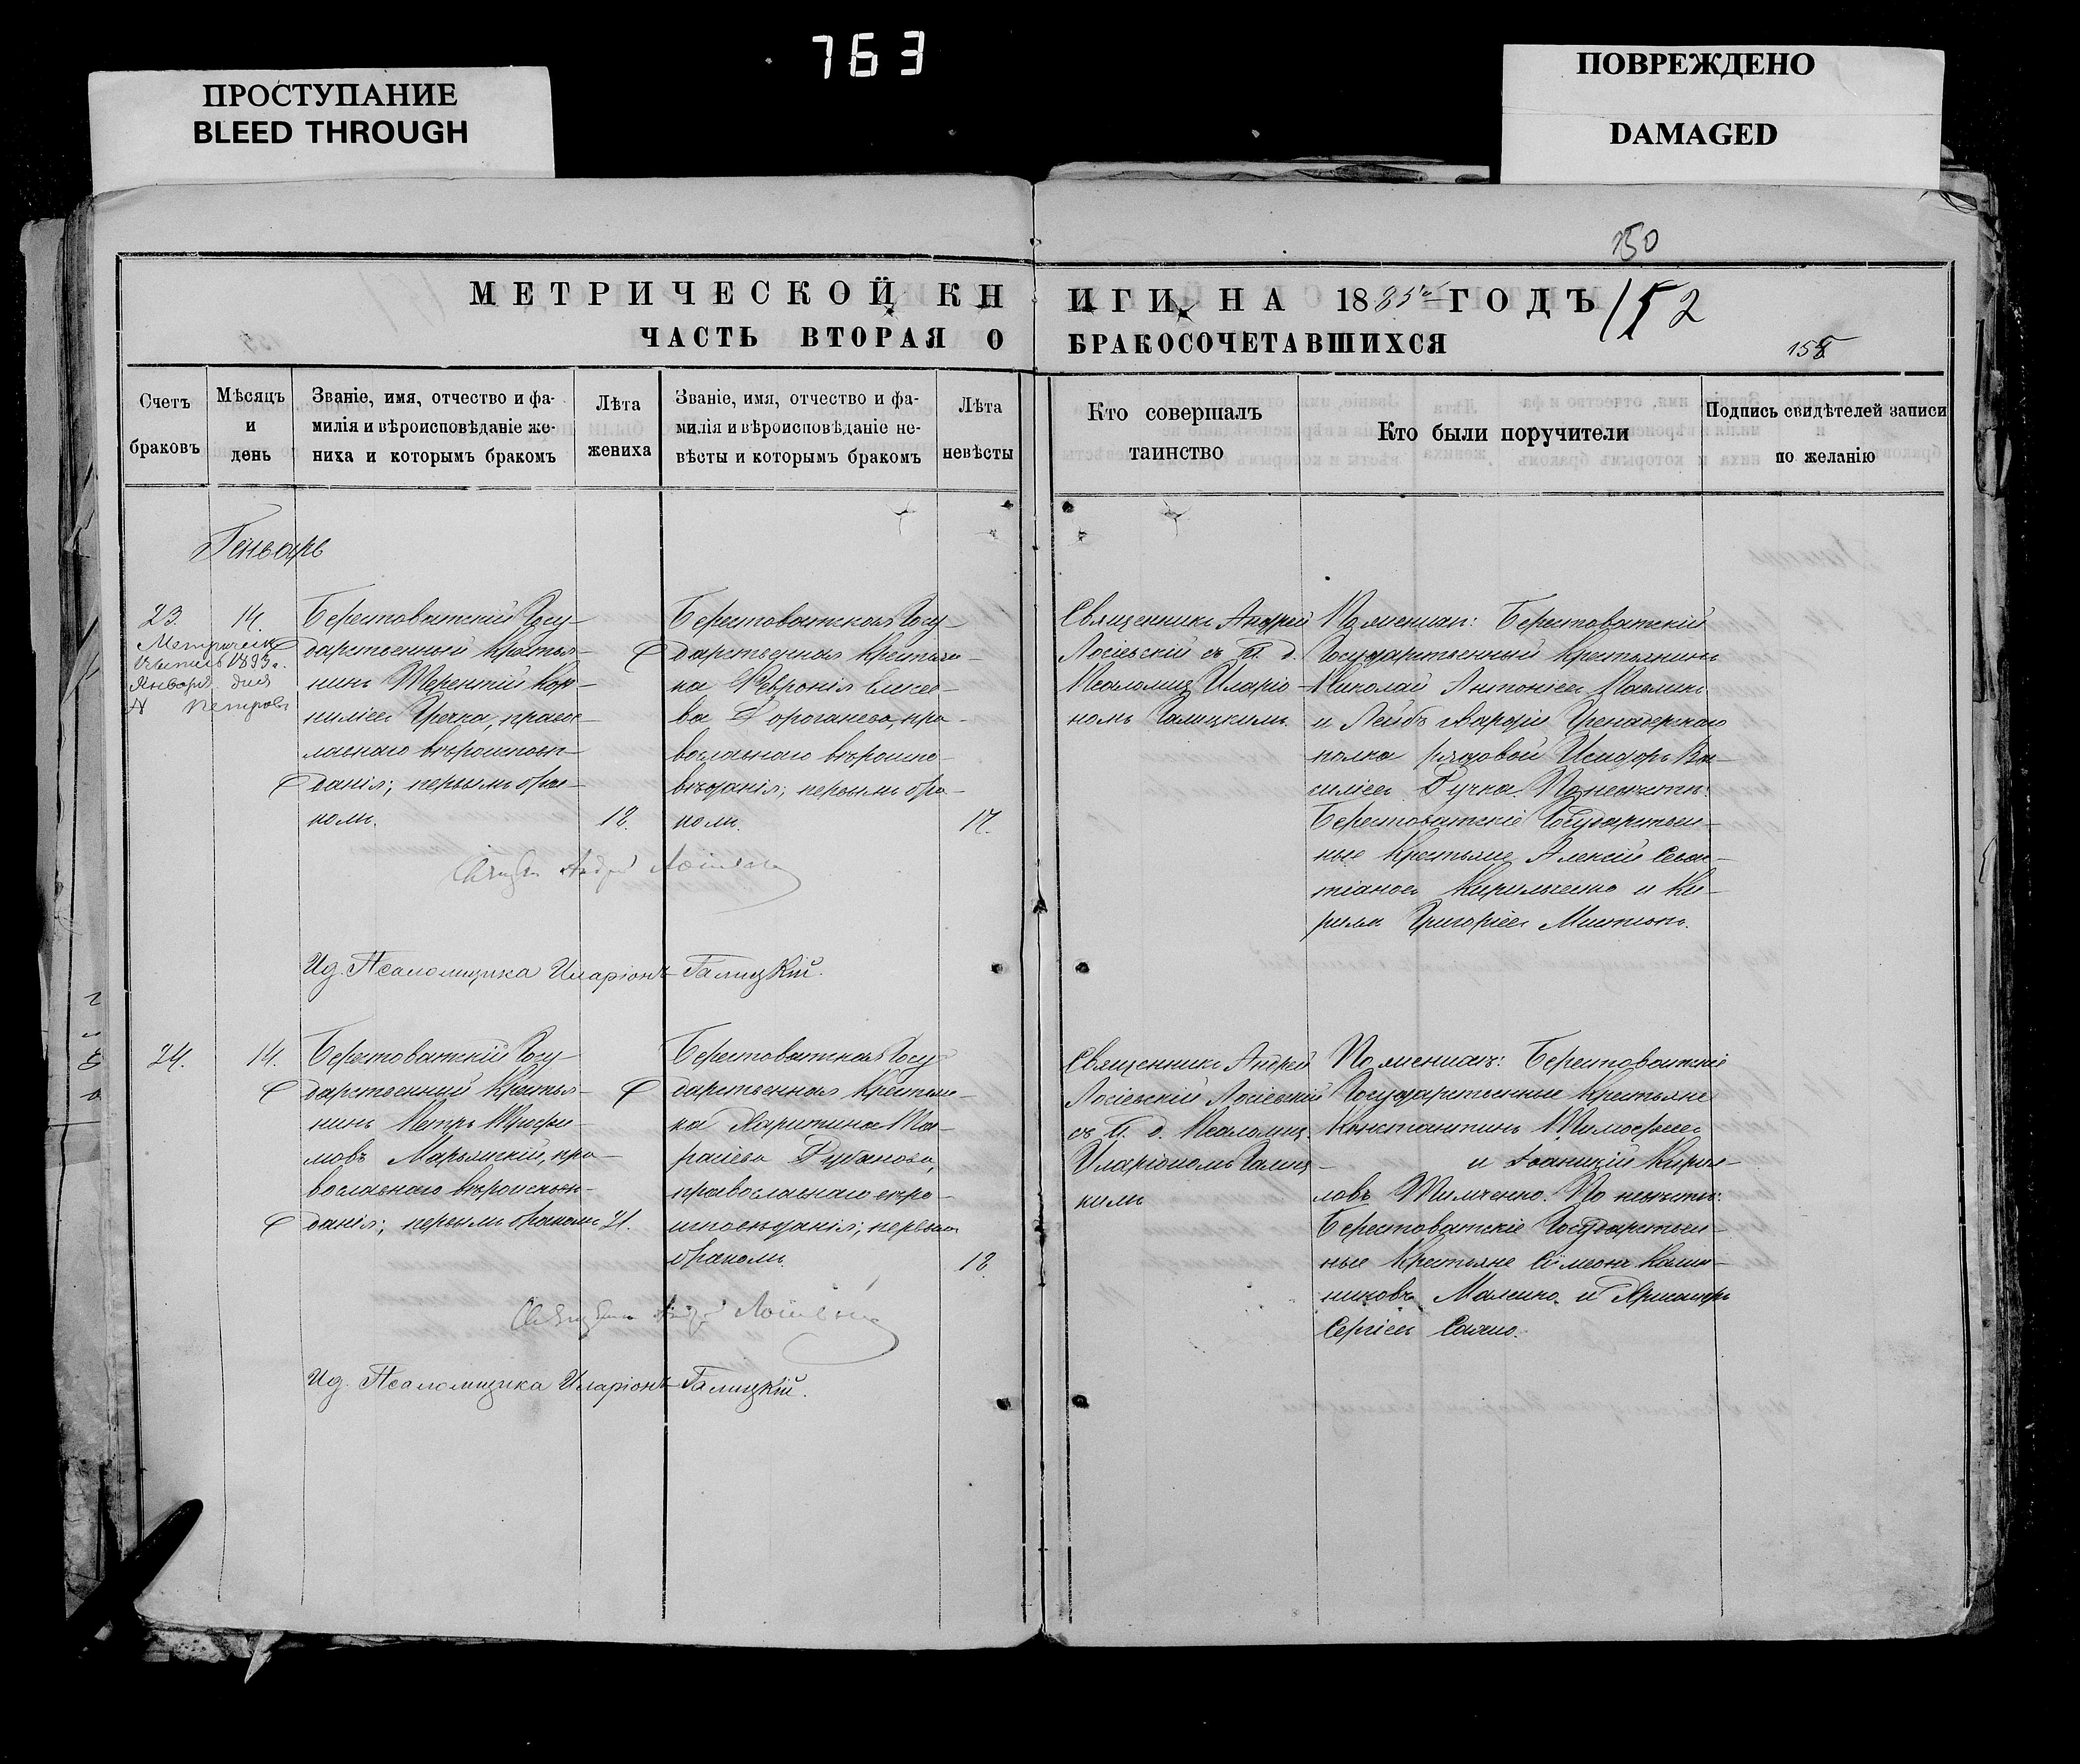 763
ПРОСТУПАНИЕ
BLEED THROUGH
ПОВРЕЖДЕНО
DAMAGED
150
МЕТРИЧЕСКОЙ КНИГИ НА 1885й ГОДЪ
152
ЧАСТЬ ВТОРАЯ О БРАКОСОЧЕТАВШИХСЯ
Счетъ браковъ
Мѣсяцъ и день
Званіе, имя, отчество и фа-
милія и вѣроисповѣданіе же-
ниха и которымъ бракомъ
Лѣта жениха
Званіе, имя, отчество и фа-
милія и вѣроисповѣданіе не-
вѣсты и которымъ бракомъ
Лѣта невѣсты
Кто совершалъ
таинство
Кто были поручители
Подпись свидѣтелей записи
по желанію
Геньварь
23.
14.
1893 г.
Января дня
Берестоватскій Госу-
дарственный Крестья-
нинъ Терентій Кор-
ниліевъ Гречка, право-
славнаго вѣроисповѣ-
данія; первымъ бра-
комъ.
18.
Берестоватская Госу-
дарственная Крестьян-
ка Февронія
Дороганева, пра-
вославнаго вѣроиспо-
вѣданія; первымъ бра-
комъ.
17.
Священникъ Андрей
Лосіевскій съ И. д.
Псаломщ. Иларіо-
номъ Галицкимъ.
По женихѣ: Берестоватскій
Государственный Крестьянинъ
Николай Антоніевъ Павликъ
и Лейбъ Гвардіи Гренадерскаго
полка рядовой Исидоръ Ва-
силіевъ Ручка. По невѣстѣ:
Берестоватскіе Государствен-
ные Крестьяне Алексій Севас-
тіановъ Кириленко и Ки-
рилъ Григоріевъ
Священникъ Андрей Лосіевскій
Ид. Псаломщика Иларіонъ Галицкій.
24.
14.
Берестоватскій Госу-
дарственный Крестья-
нинъ Петръ Трофи-
мовъ Марьинскій, пра-
вославнаго вѣроисповѣ-
данія; первымъ бракомъ
21.
Берестоватская Госу-
дарственная Крестьян-
ка Харитина Та-
расіева Рубанова,
православнаго вѣро-
исповѣданія; первымъ
бракомъ.
18.
Священникъ Андрей
Лосіевскій Лосіевскій
съ И. д. Псаломщ.
Иларіономъ Галиц-
кимъ
По женихѣ: Берестоватскіе
Государственные Крестьяне
Константинъ Тимофеевъ
и Іоанникій Кирил-
ловъ Тимченко. По невѣстѣ:
Берестоватскіе Государствен-
ные Крестьяне Сѵмеонъ Калин-
никовъ Маленко и
Сергіевъ Сачко.
Священникъ Андрей Лосіевскій
Ид. Псаломщика Иларіонъ Галицкій.